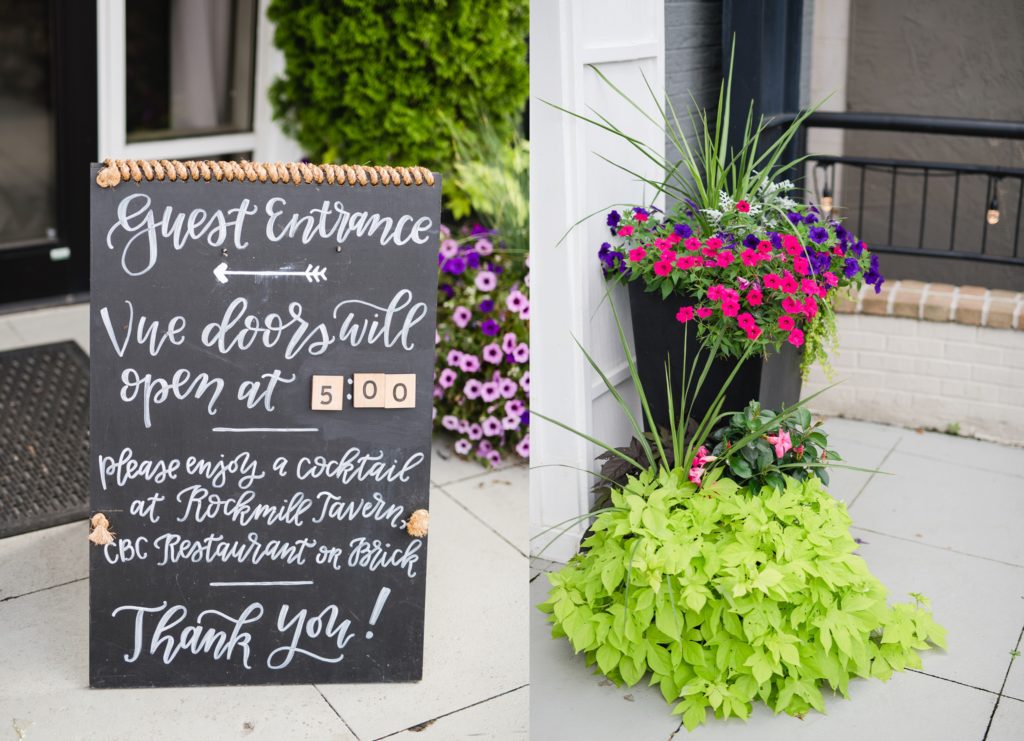 Guest Entrance
Vue doors will
open at 5:00
please enjoy a cocktail
at Rockmill Tavern,
CBC Restaurant or Brick
Thank You!